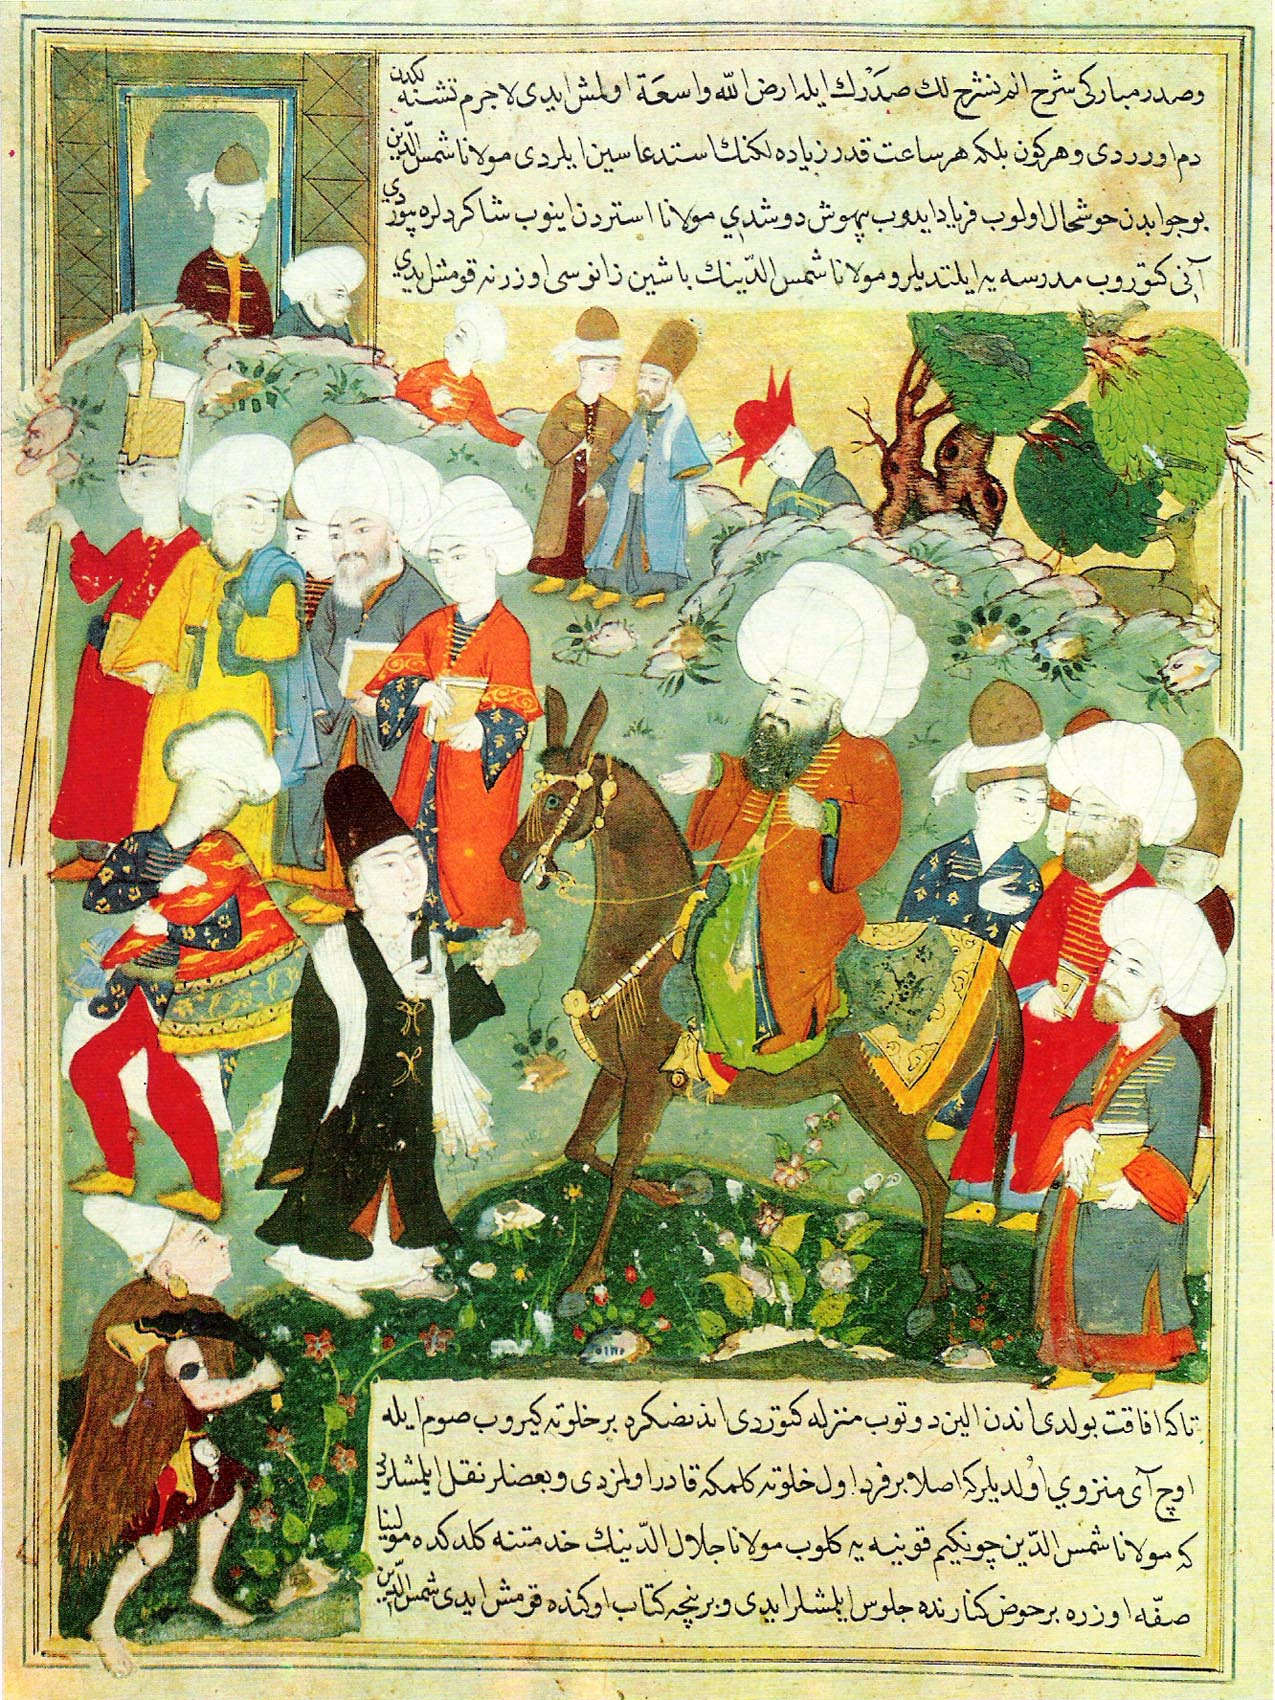 وصدر مباركی شرح الم نشرح لك صَدْرك ايله ارض الله واسعَة اولمش ايدی لاجرم تشنه لكدن
دم اورردی وهركون بلكه هر ساعت قدر زياده لكنك استدعاسين ايلردی مولانا شمس الدّين
بو جوابدن خوشحال اولوب فرياد ايدوب بيهوش دوشدی مولانا استردن اينوب شاكردلره بيوردي
آنی كتوروب مدرسه يه ايلتديلر ومولانا شمس الدّينك باشين زانوسی اوزرنه قومش ايدي
تا كه افاقت بولدی اندن الين دوتوب منزله كتوردی اندنصكره بر خلوته كيروب صوم ايله
اوچ آی منزوي اولديلر كه اصلا بر فرد اول خلوته كلمكه قادر اولمزدی وبعضلر نقل ايلمشلردر
كه مولانا شمس الدّين چونكيم قونيه يه كلوب مولانا جلال الدّينك خدمتنه كلدكده مولينا
صفّه اوزره بر حوض كنارنده جلوس ايلمشلر ايدی وبر نيچه كتاب اوكنده قومش ايدی شمس الدّين